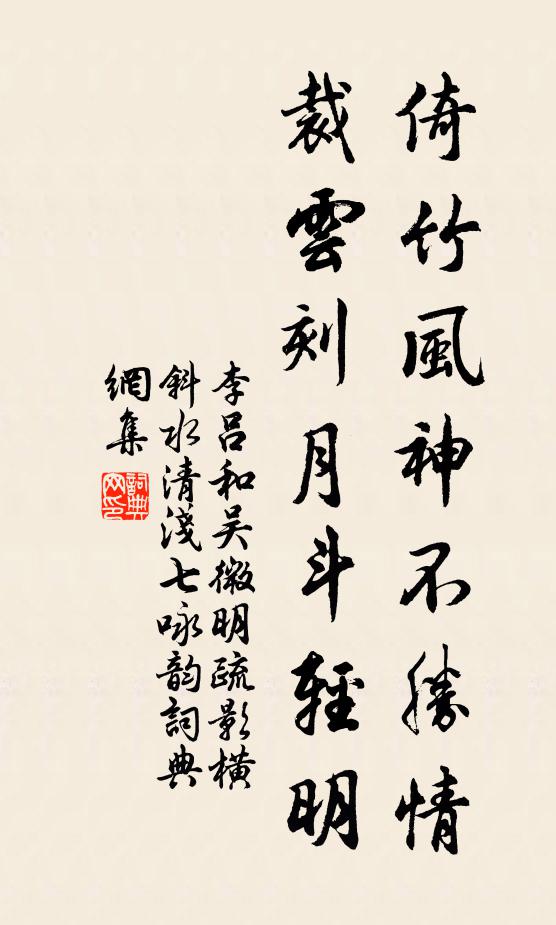 倚竹風神不勝情
裁雲刻月斗輕明
李呂和吴微明疏影橫
斜水清淺七咏韵詞典
網集
詞典
网印